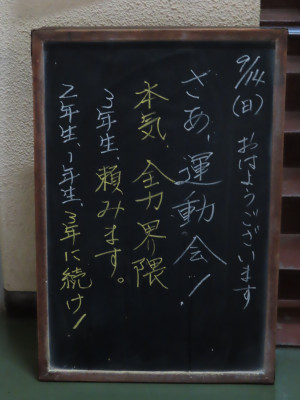 9/14(日) おはようございます
さあ、運動会!
本気、全力界隈
3年生、頼みます。
2年生、1年生、3年に続け!